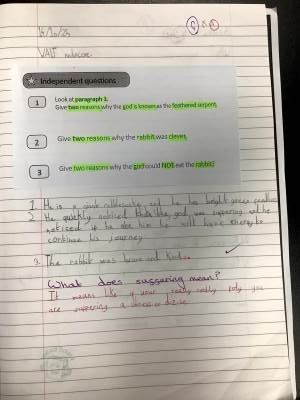 VALT
Independent questions
1 Look at paragraph 1.
Give two reasons why the god is known as the feathered serpent.
2 Give two reasons why the rabbit was clever.
3 Give two reasons why the god would NOT eat the rabbit?
1. He is a and he has bright green feathers
2. He quickly noticed the god was suggering and he
noticed if he ate him he will have energy to
continue his journey
3. The rabbit was brave and kind.
What does suggering mean?
It means like if your really really you
are suggering a or